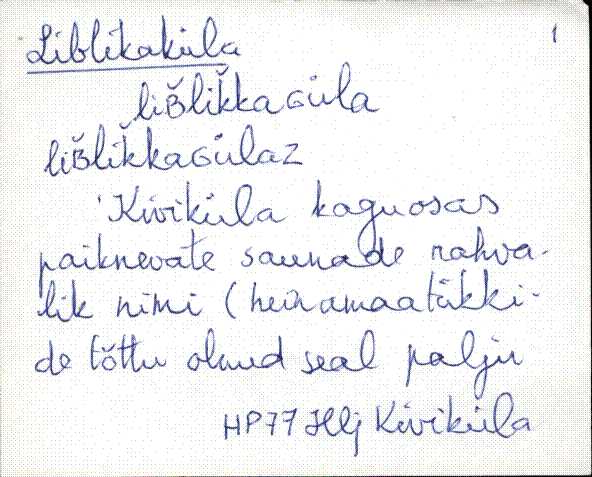 Liblikaküla
1
liʙ̆lĭkkaɢüla
liʙ̆lĭkkaɢülaz
'Kiviküla kaguosas
paiknevate saunade rahva-
lik nimi (heinamaatükki-
de tõttu olnud seal palju
HP77 Hlj Kiviküla